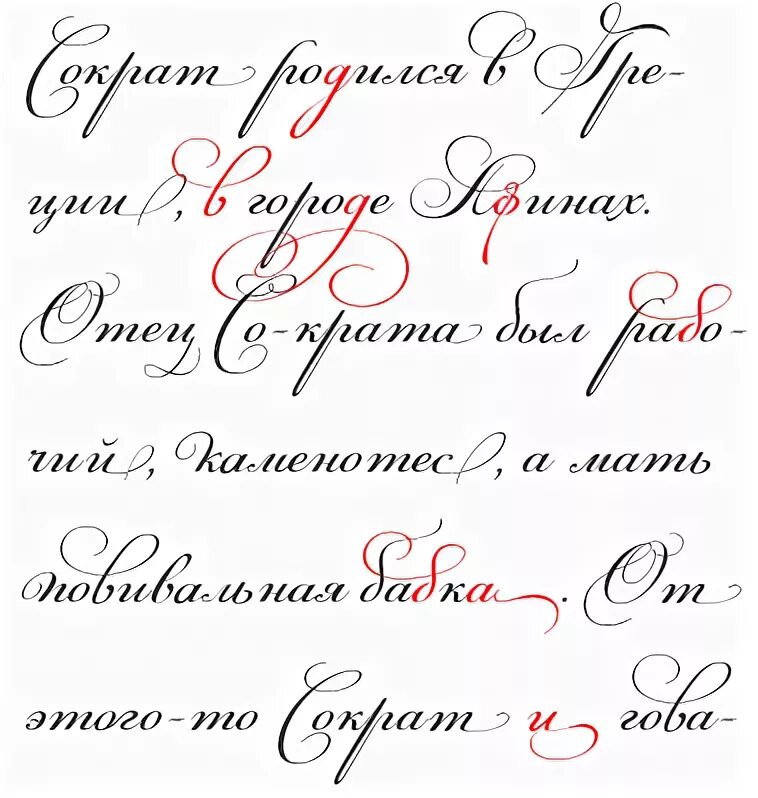 Сократ родился в Гре-
ции, в городе Афинах.
Отец Со-крата был рабо-
чий, каменотес, а мать
повивальная бабка. От
этого-то Сократ и гова-